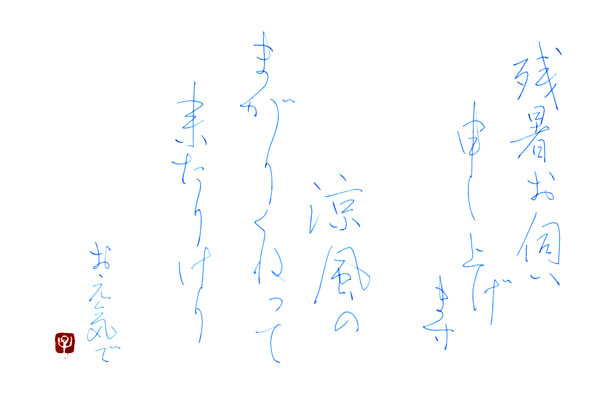 残暑お伺い
申し上げ
ます
涼風の
まがりくねって
来たりけり
お元気で